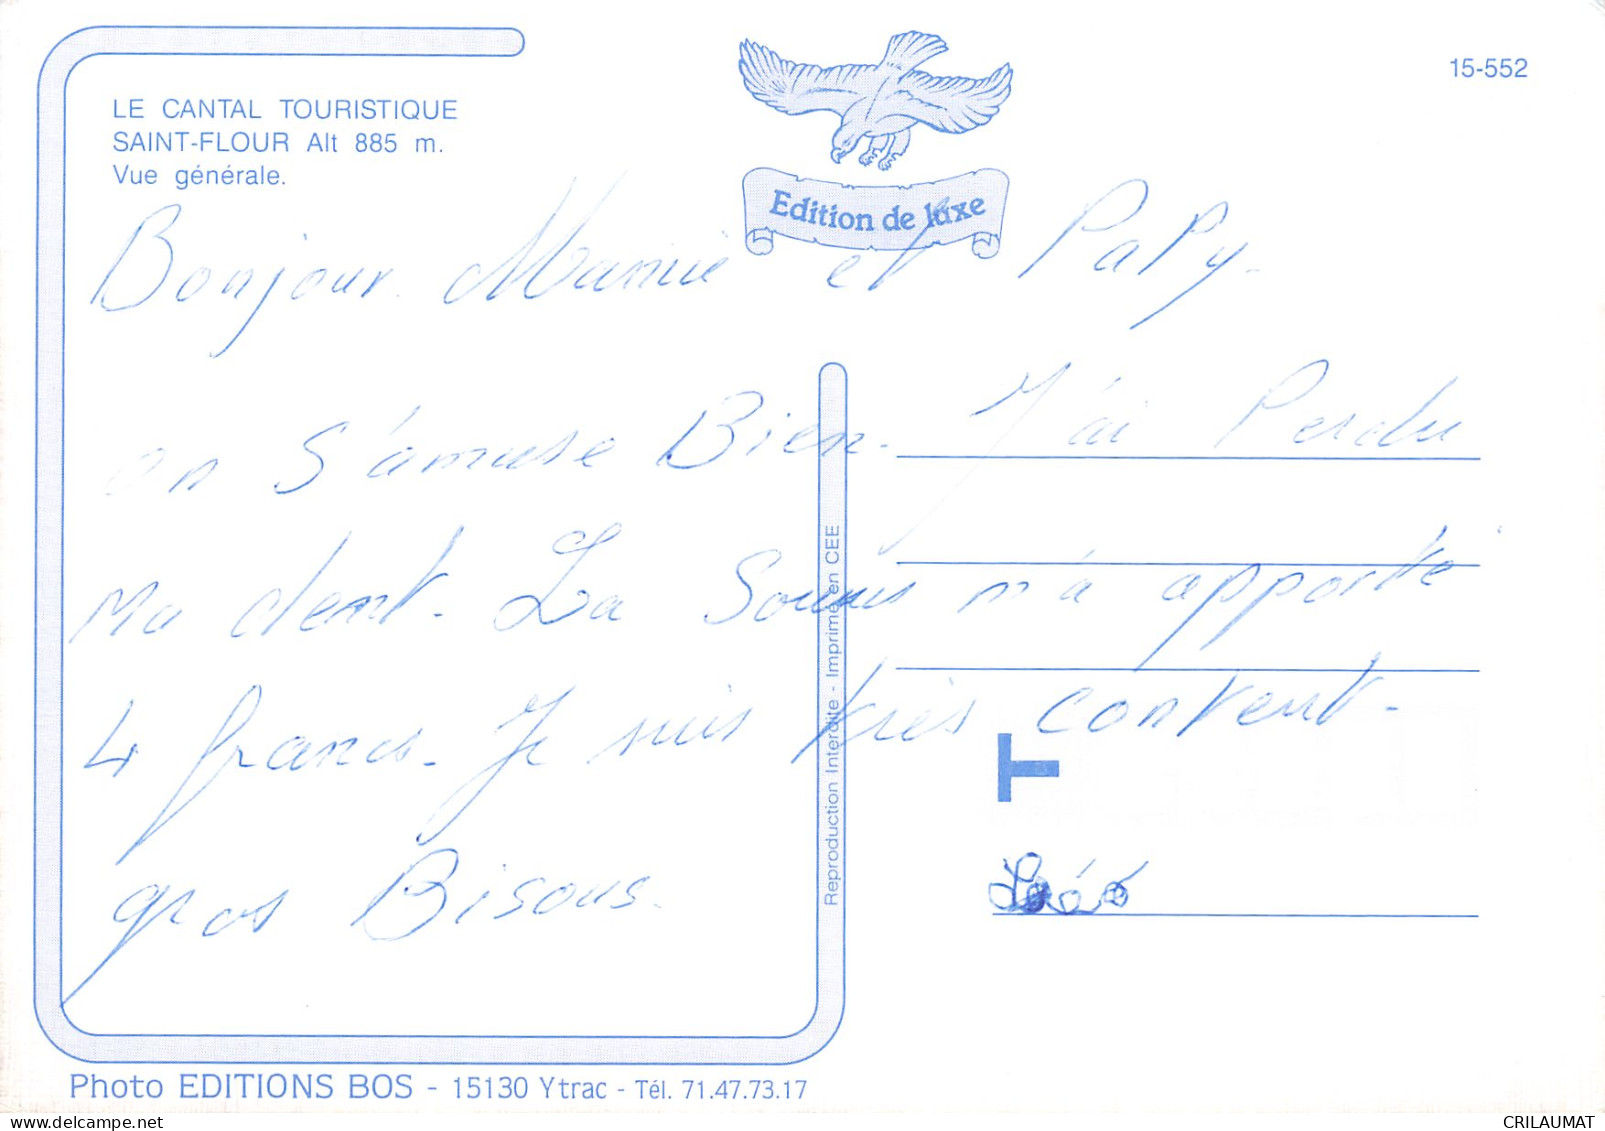 LE CANTAL TOURISTIQUE
SAINT-FLOUR Alt 885 m.
Vue générale.
Edition de luxe
15-552
Bonjour Mamie et PaPy.
on s'amuse Bien. J'ai Perdu
Ma dent. La Souris m'a apporté
4 francs. Je suis très content.
gros Bisous.
Léo
T
Reproduction Interdite - Imprimé en CEE
Photo EDITIONS BOS - 15130 Ytrac - Tél. 71.47.73.17
delcampe.net
CRILAUMAT